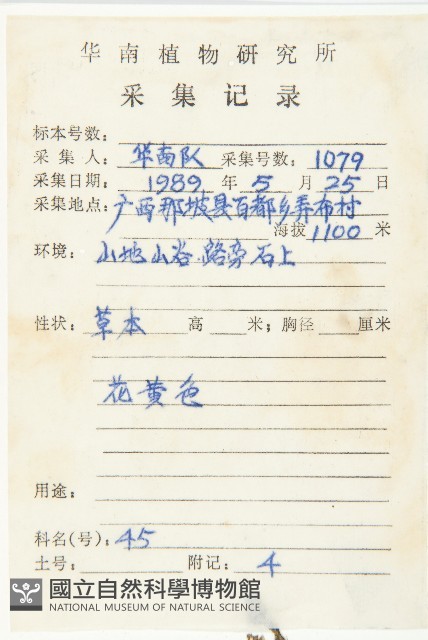 华南植物研究所
采集记录
标本号数：
采集人：华南队 采集号数：1079
采集日期：1989年5月25日
采集地点：广西那坡县百都乡弄布村
海拔1100米
环境：山地山谷路旁石上
性状：草本 高 米；胸径 厘米
花黄色
用途：
科名(号)：45
土号： 附记：4
國立自然科學博物館
NATIONAL MUSEUM OF NATURAL SCIENCE